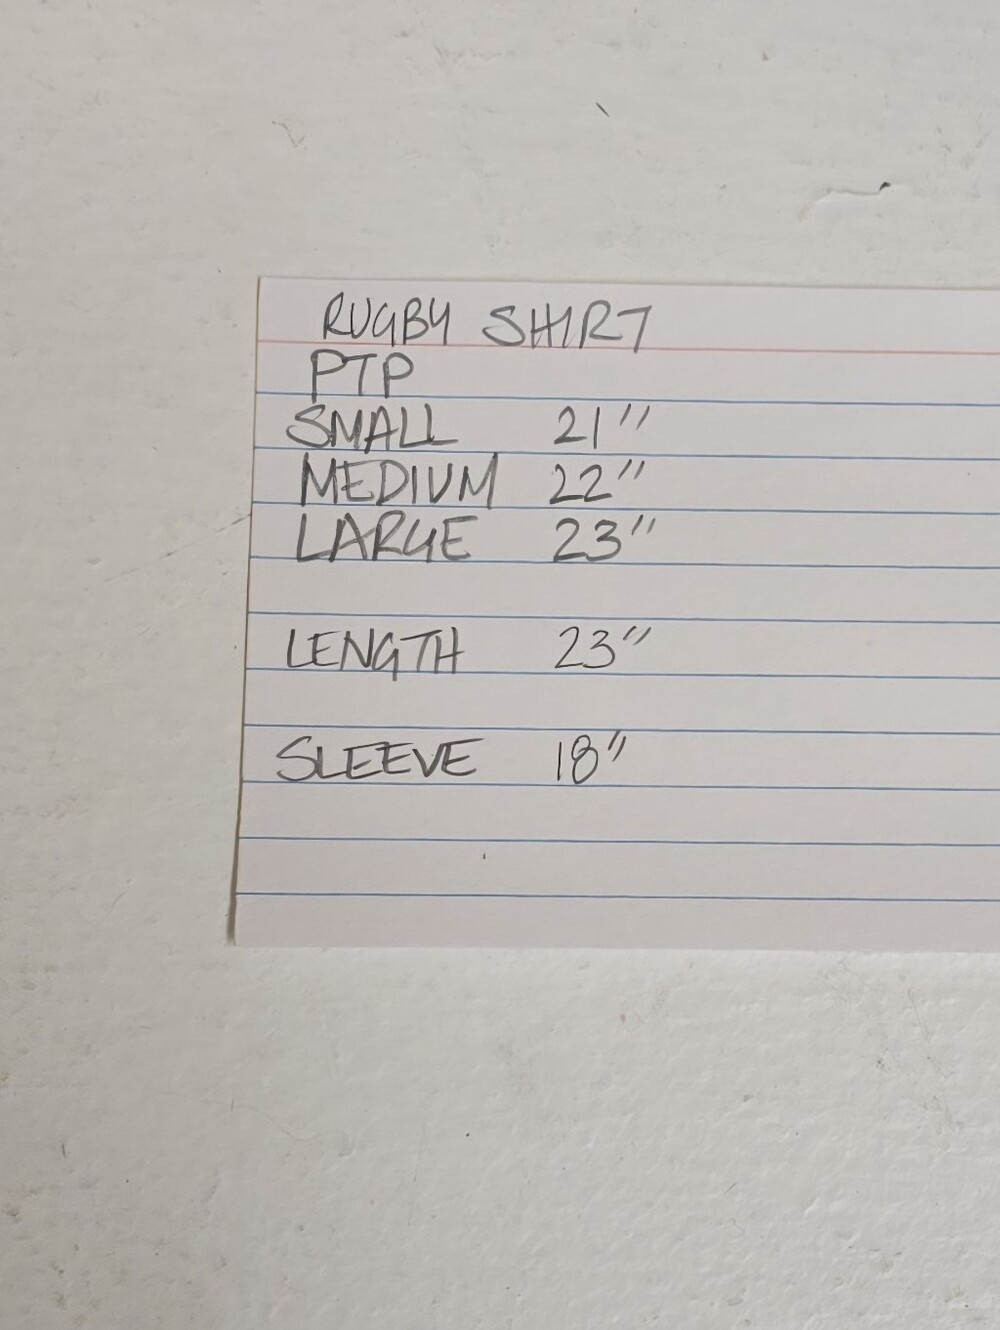 RUGBY SHIRT
PTP
SMALL 21"
MEDIUM 22"
LARGE 23"
LENGTH 23"
SLEEVE 18"